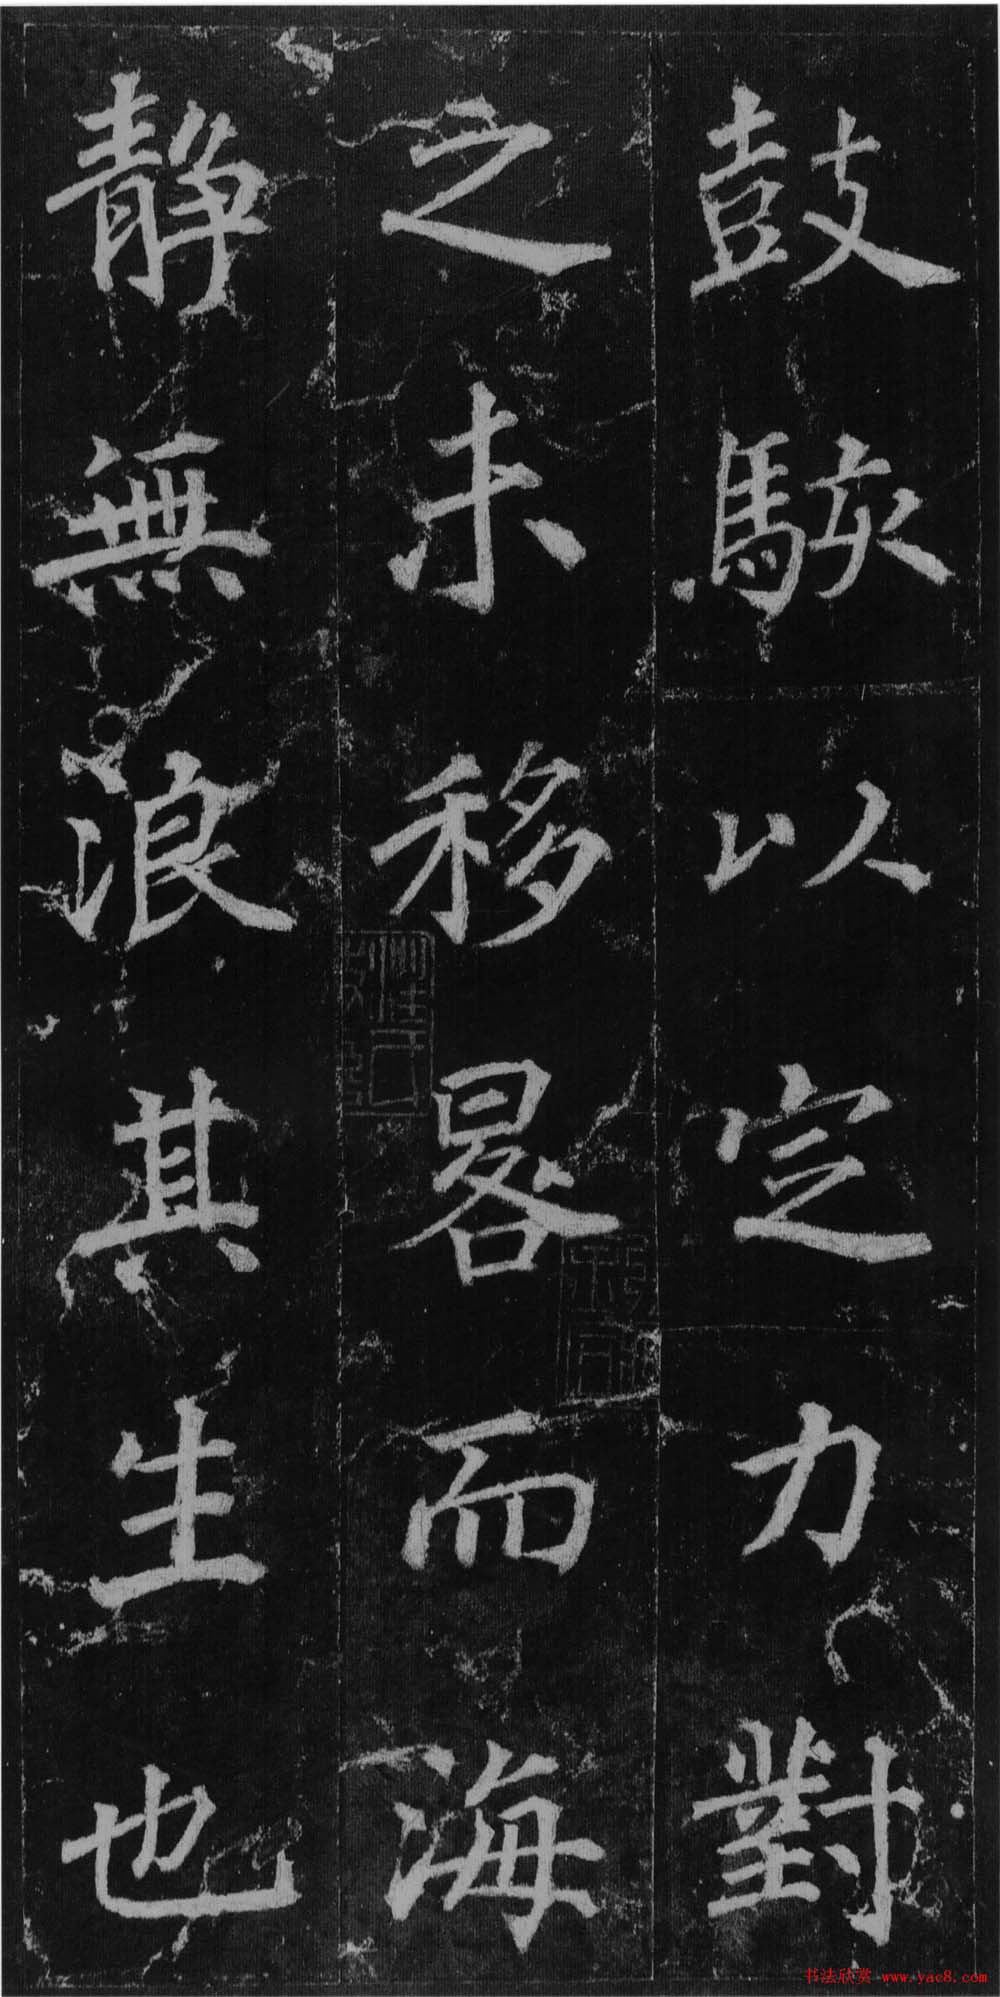 鼓駭以定力對
之未移晷而海
静無浪其生也
书法欣赏 www.yac8.com